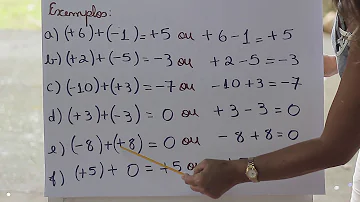 Exemplos:
a) (+6)+(-1)=+5 ou +6-1=+5
b) (+2)+(-5)=-3 ou +2-5=-3
c) (-10)+(+3)=-7 ou -10+3=-7
d) (+3)+(-3)=0 ou +3-3=0
e) (-8)+(+8)=0 ou -8+8=0
f) (+5)+0=+5 ou